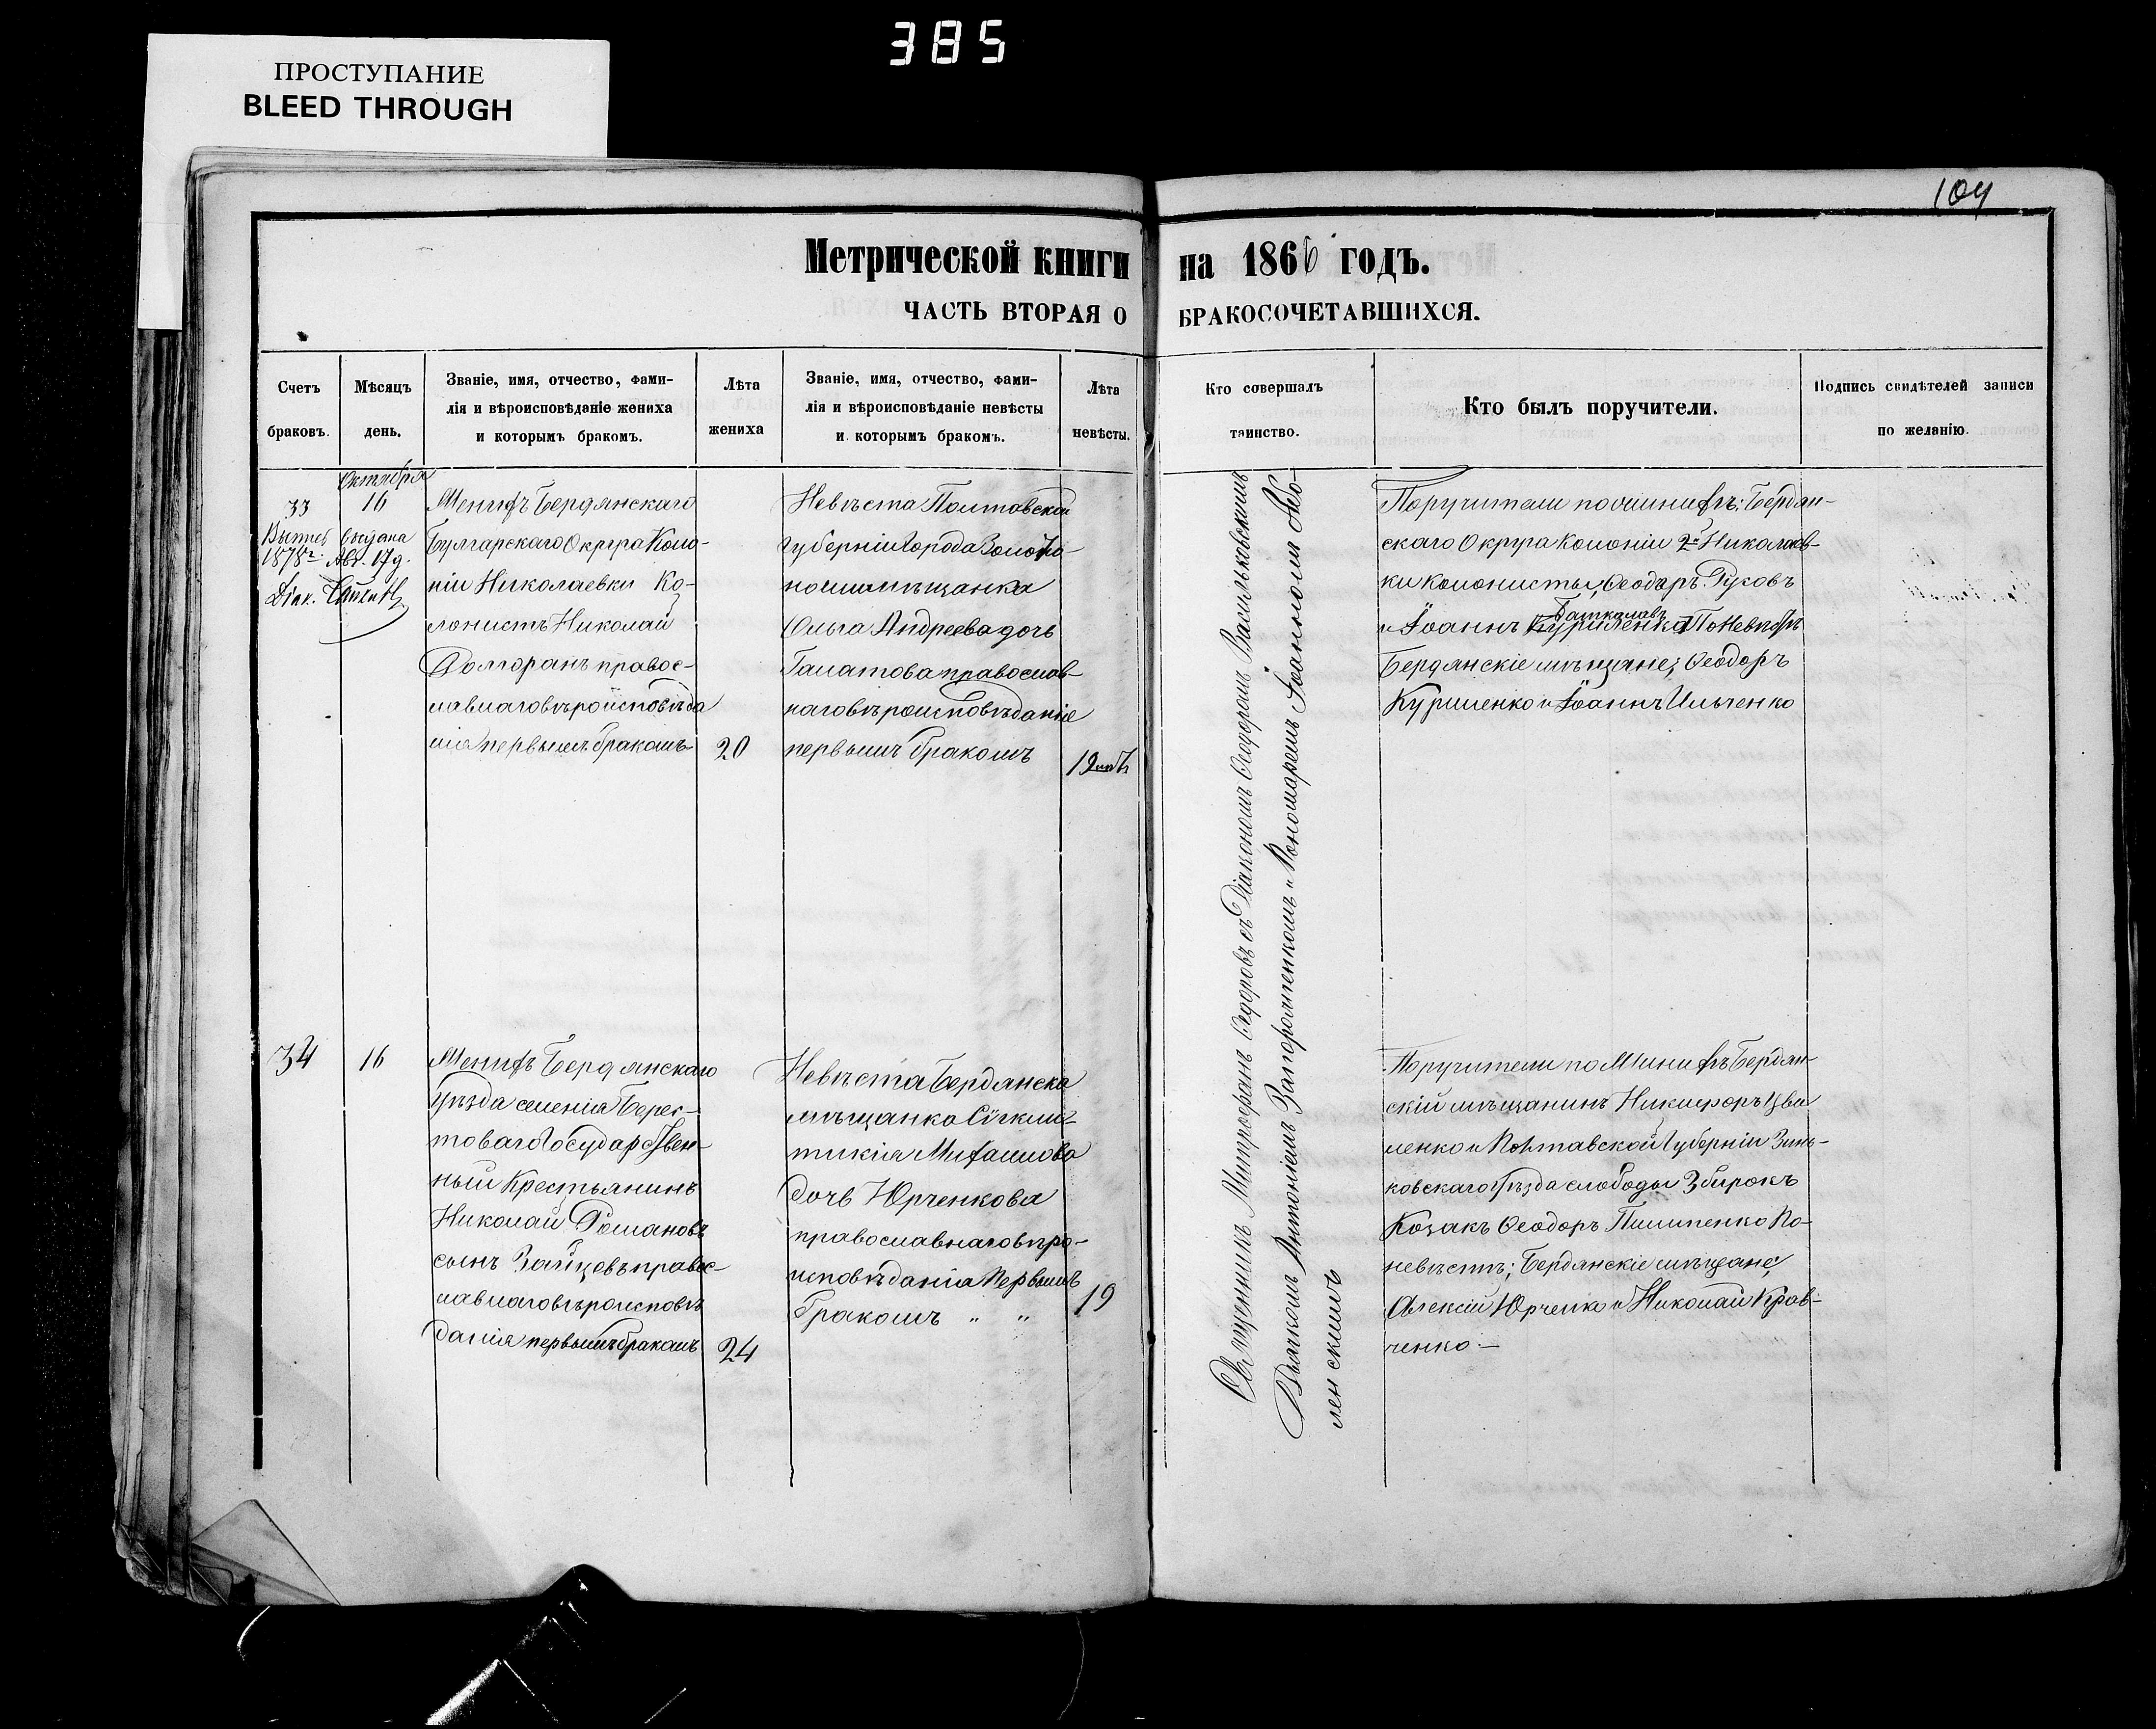 385
ПРОСТУПАНИЕ
BLEED THROUGH
104
Метрической книги на 1866 годъ.
ЧАСТЬ ВТОРАЯ О БРАКОСОЧЕТАВШИХСЯ.
Счетъ
браковъ.
Мѣсяцъ
день.
Званіе, имя, отчество, фами-
лія и вѣроисповѣданіе жениха
и которымъ бракомъ.
Лѣта
жениха
Званіе, имя, отчество, фами-
лія и вѣроисповѣданіе невѣсты
и которымъ бракомъ.
Лѣта
невѣсты.
Кто совершалъ
таинство.
Кто былъ поручители.
Подпись свидѣтелей записи
по желанію.
Октября
33
16
выдана
1878 г. Авг. 17 д.
Діак.
Женихъ Бердянскаго
Булгарскаго Округа Коло-
ніи Николаевки Ко-
лонистъ Николай
правос-
лавнаго вѣроисповѣда
нія первымъ бракомъ
20
Невѣста Полтавской
Губерніи Города Золото-
ноши мѣщанка
Ольга Андреева дочь
Галатова православ-
наго вѣроисповѣданіе
первымъ бракомъ
19 лѣтъ
Священникъ Митрофанъ Федоровъ съ Діакономъ Феодоромъ Васильковскимъ
Дьячкомъ Антоніемъ и Пономаремъ Іоанномъ
ленскимъ
Поручители по женихѣ: Бердян-
скаго Округа Колоніи 2й Николаев-
ки колонисты, Феодоръ Русовъ
и Іоаннъ По Невѣстѣ
Бердянскіе мѣщане; Феодоръ
Куриленко и Іоаннъ Ильченко
34
16
Женихъ Бердянскаго
Уѣзда селенія Берес-
товаго Государствен-
ный Крестьянинъ
Николай Романовъ
сынъ Зайцевъ правос-
лавнаго вѣроисповѣ
данія первымъ бракомъ
24
Невѣста Бердянска
мѣщанка Сѵнкли-
тикія Михаилова
дочь Юрченкова
православнаго вѣро-
исповѣданія Первымъ
бракомъ „ „
19
Поручители по Женихѣ Бердян-
скій мѣщанинъ Никифоръ Цви
ленко и Полтавской Губерніи Зинь-
ковскаго Уѣзда слободы
Козакъ Феодоръ Пилипенко По-
невѣстѣ; Бердянскіе мѣщане,
Алексій Юрченко и Николай Крав-
ченко.—